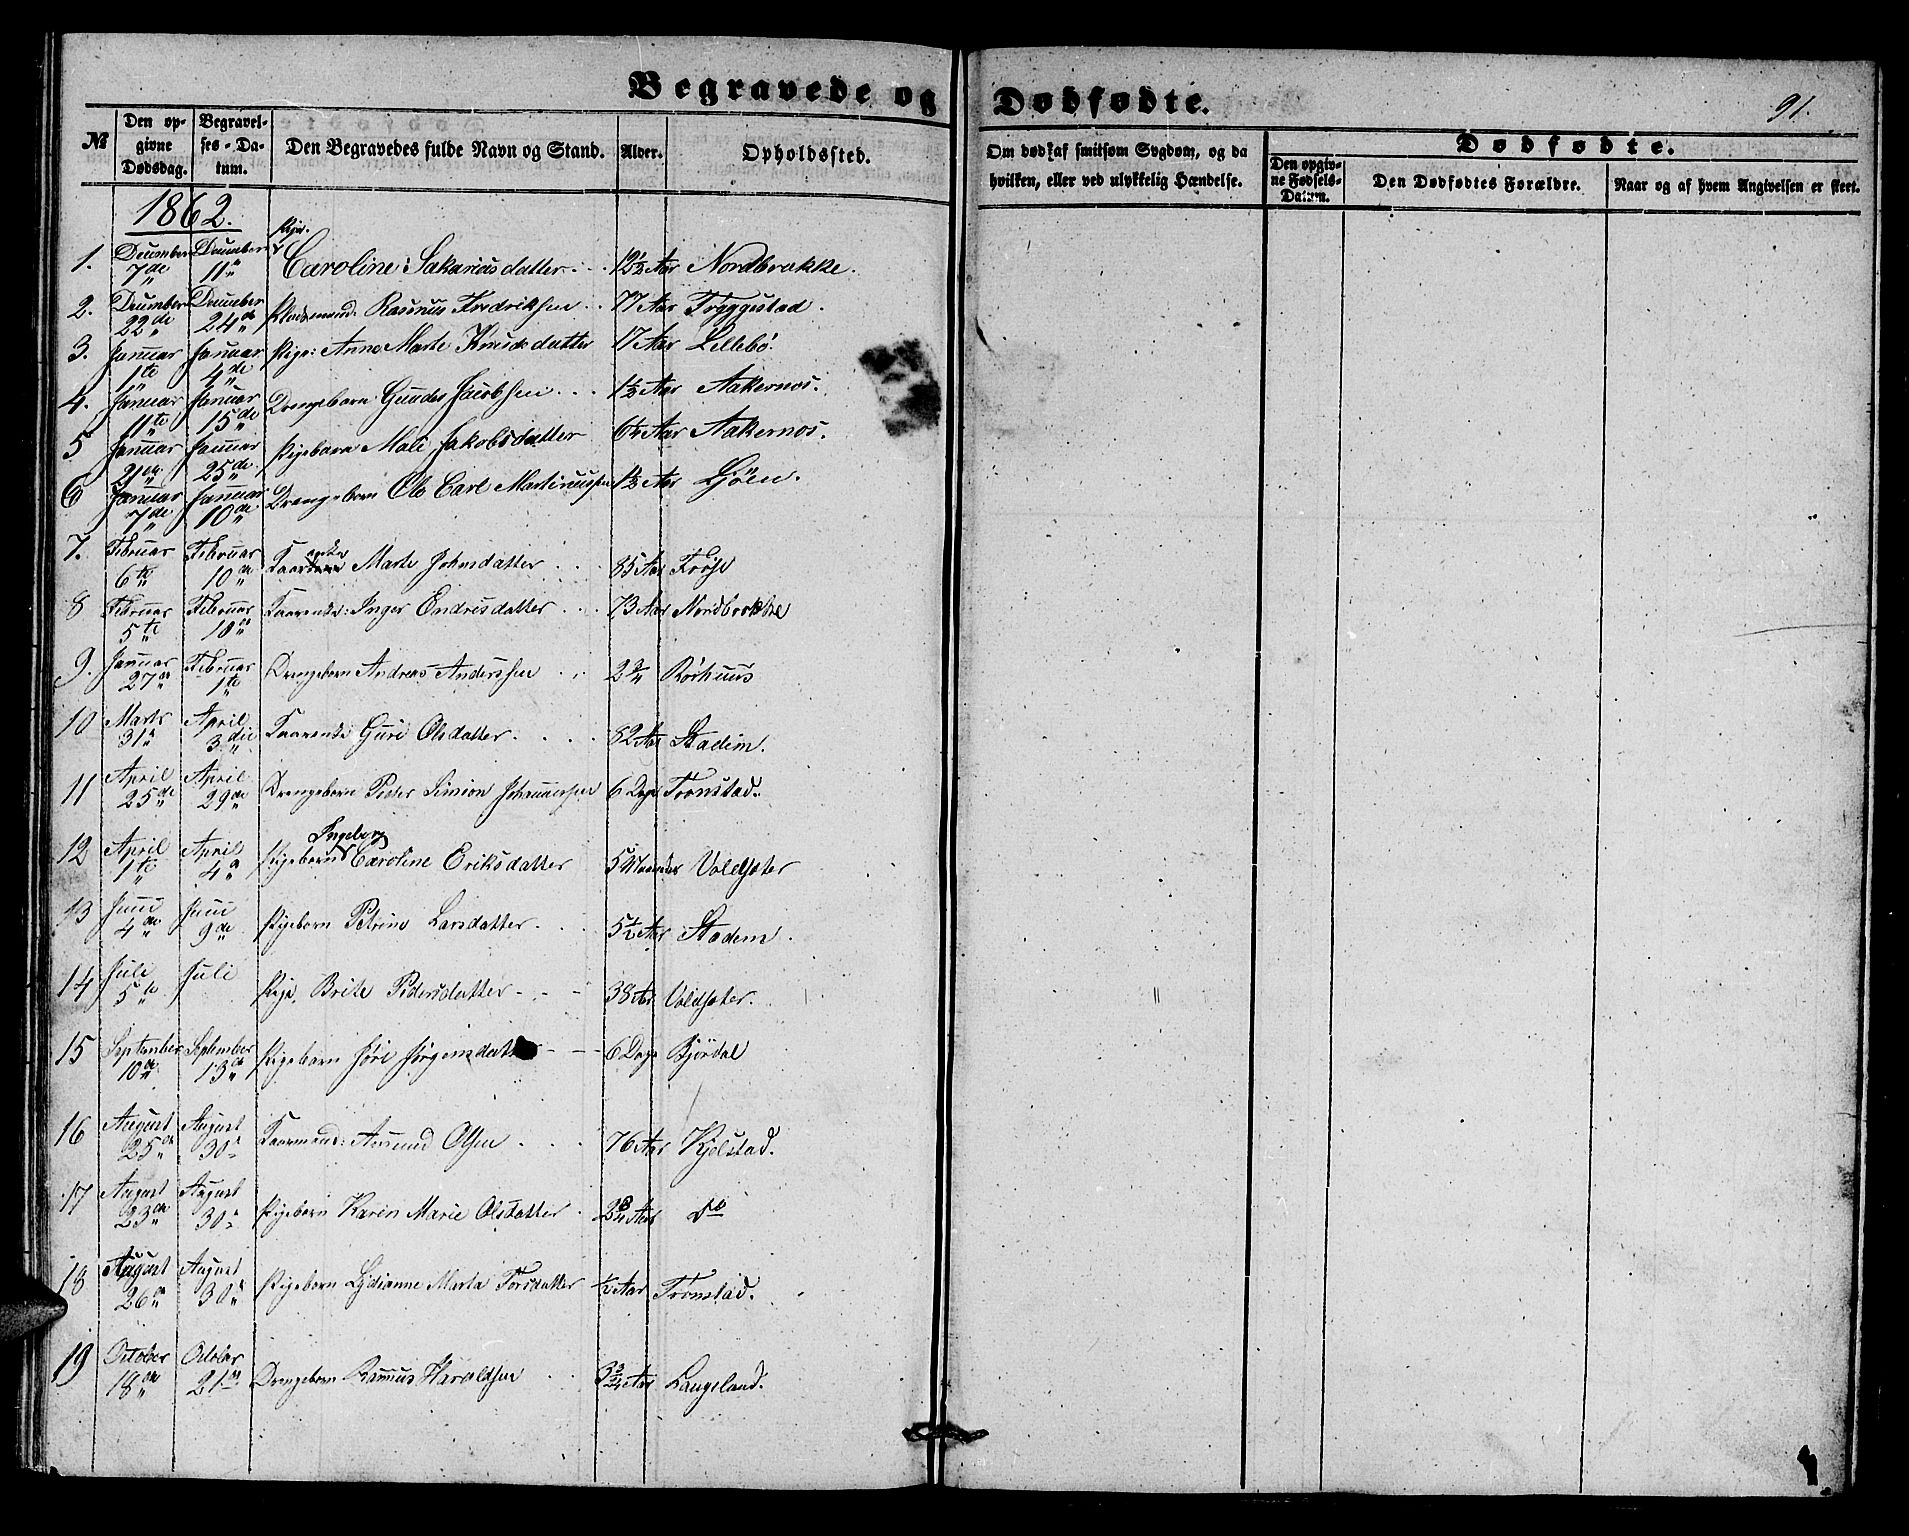 Begravede og Dødfødte.
91.
№ Den opgivne Dødsdag. Begravelses-Datum. Den Begravedes fulde Navn og Stand. Alder. Opholdssted. Om død af smitsom Sygdom, og da hvilken, eller ved ulykkelig Hændelse. Dødfødte. Den opgivne Fødsels-Datum. Den Dødfødtes Forældre. Naar og af hvem Angivelsen er skeet.
1862.
1. December 7de December 11 Pige Caroline Sakariasdatter 12½ Aar Nordbrække.
2. December 22de December 24de Rasmus Fredriksen 77 Aar Tryggestad.
3. Januar 1te Januar 4de Pige: Anne Marte Knudsdatter 17 Aar Lillebö.
4. Januar 11te Januar 15de Drengebarn Gunder Jacobsen 1½ Aar Aakernes.
5 Januar 21de Januar 25de Pigebarn Mali Jakobsdatter 6½ Aar Aakernes.
6 Januar 7de Januar 10de Drengebarn Ole Carl Martinussen 1½ Aar Ljöen.
7. Februar 6te Februar 10de Kaarenke Marte Johnsdatter 85 Aar Fröse
8 Februar 5te Februar 10de Kaarenke: Inger Endresdatter 73 Aar Nordbrække
9. Januar 27de Februar 1te Drengebarn Andreas Anderssen 2¾ Rörhuus
10 Marts 31 April 3die Kaarenke Guri Olsdatter 82 Aar Stadem.
11 April 25de April 29de Drengebarn Peder Simion Johannessen 6 Dage Tronstad.
12 April 1te April 4de Pigebarn Ingeborg Caroline Eriksdatter 5 Maaneder Voldsæter
13 Juni 4de Juni 9de Pigebarn Petrine Larsdatter 5½ Aar Stadem.
14 Juli 5te Juli Pige, Brite Pedersdatter 38 Aar Voldsæter.
15 September 10de September 13de Pigebarn Jöri Jörgensdatter 6 Dage Björdal
16 August 25de August 30 Kaarmand: Aamund Olsen 76 Aar Kjelstad.
17 August 23de August 30 Pigebarn Karen Marie Olsdatter 2¾ Aar do
18 August 26de August 30 Pigebarn Lydianne Marta Torsdatter ½ Aar Tronstad.
19 October 18de October 21de Drengebarn Rasmus Haraldsen 3¾ Aar Langeland.